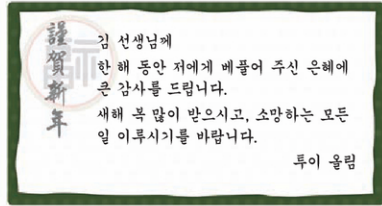 謹賀新年
김 선생님께
한 해 동안 저에게 베풀어 주신 은혜에
큰 감사를 드립니다.
새해 복 많이 받으시고, 소망하는 모든
일 이루시기를 바랍니다.
투이 올림